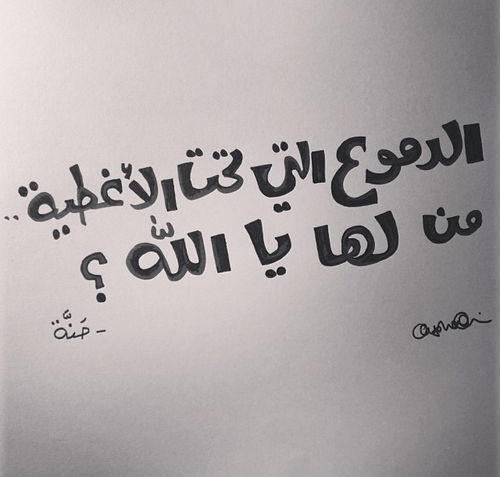 الدموع التي تحت الأغطية..
من لها يا اللّٰه ؟
- حَنَّة